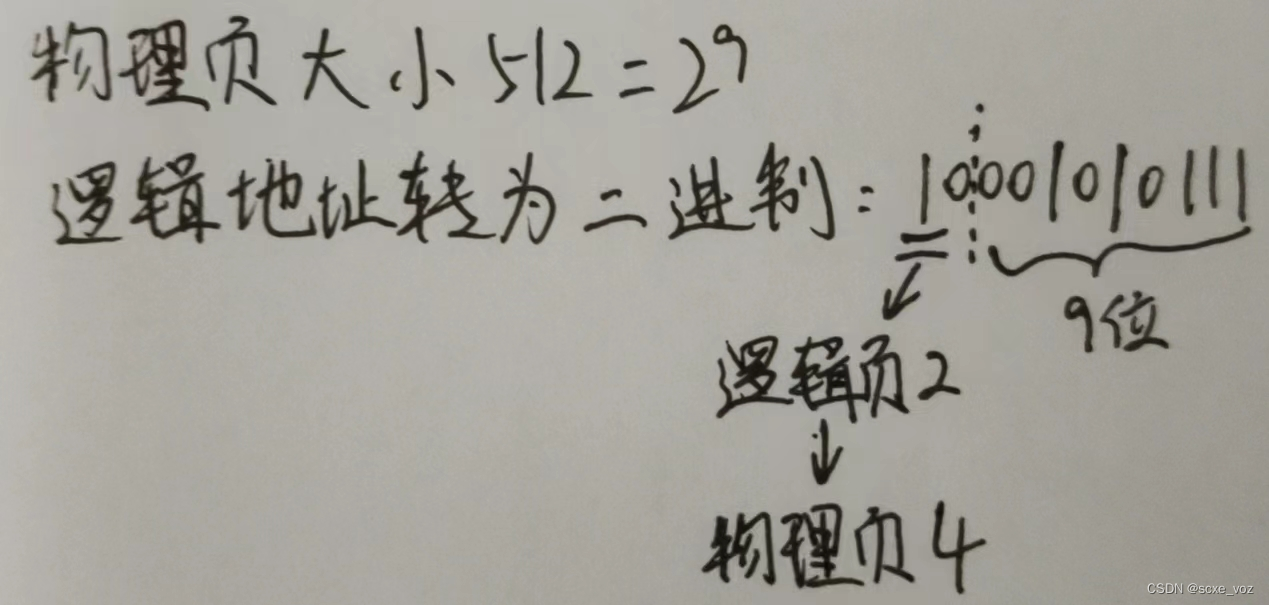 物理页大小 512 = 2⁹
逻辑地址转为二进制：10001010111
9位
逻辑页2
物理页4
CSDN @scxe_voz